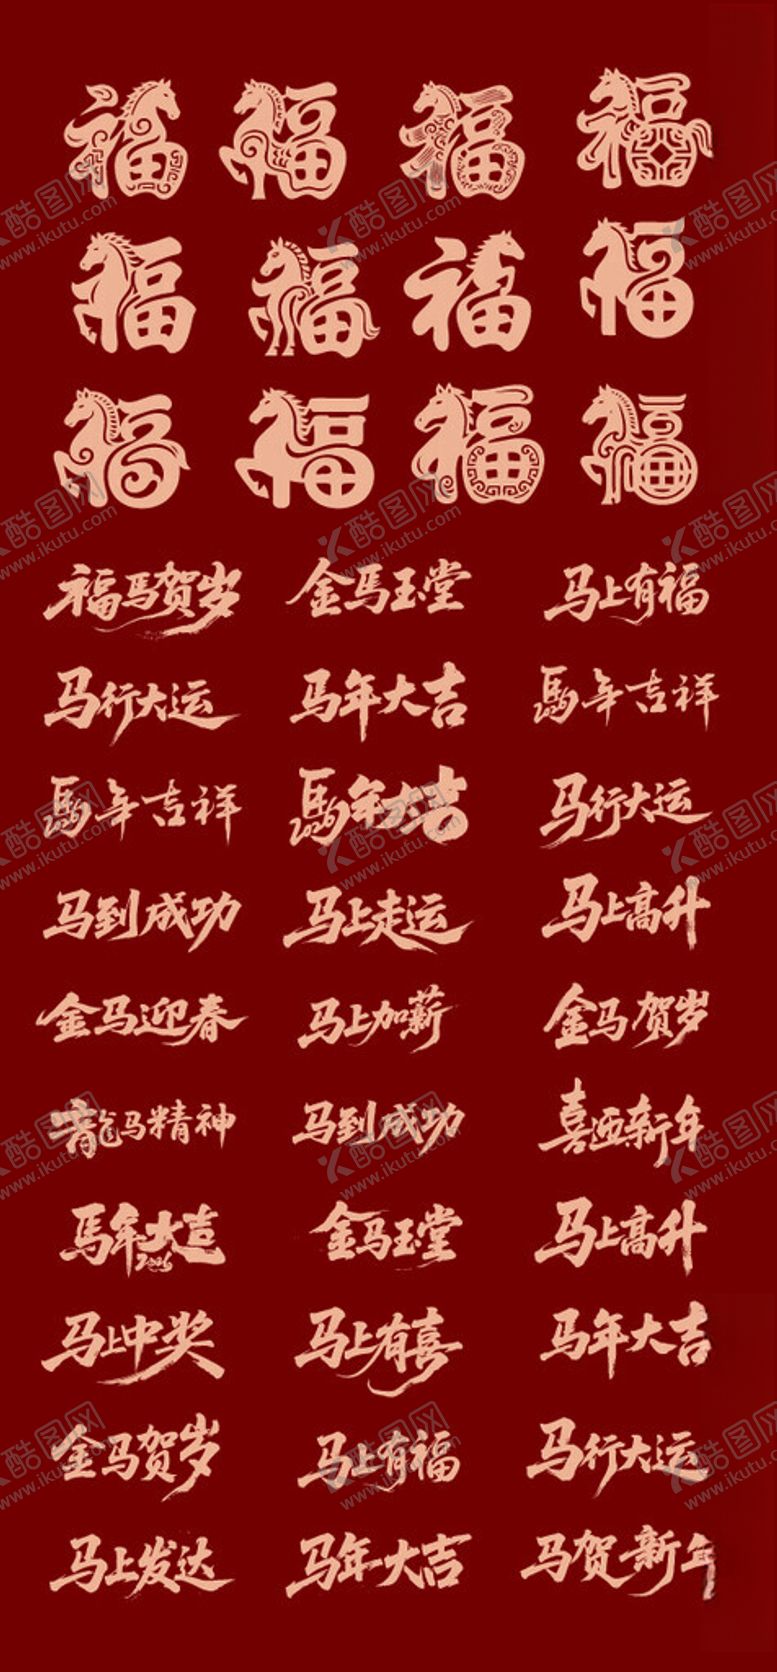 福 福 福 福
福 福 福 福
福 福 福 福
福馬贺岁 金馬玉堂 马上有福
马行大运 马年大吉 馬年吉祥
馬年吉祥 馬年大吉 马行大运
马到成功 马上走运 马上高升
金马迎春 马上加薪 金马贺岁
龍马精神 马到成功 喜迎新年
馬年大吉 2026 金马玉堂 马上高升
马上中奖 马上有喜 马年大吉
金马贺岁 马上有福 马行大运
马上发达 马年大吉 马贺新年
酷图网
www.ikutu.com